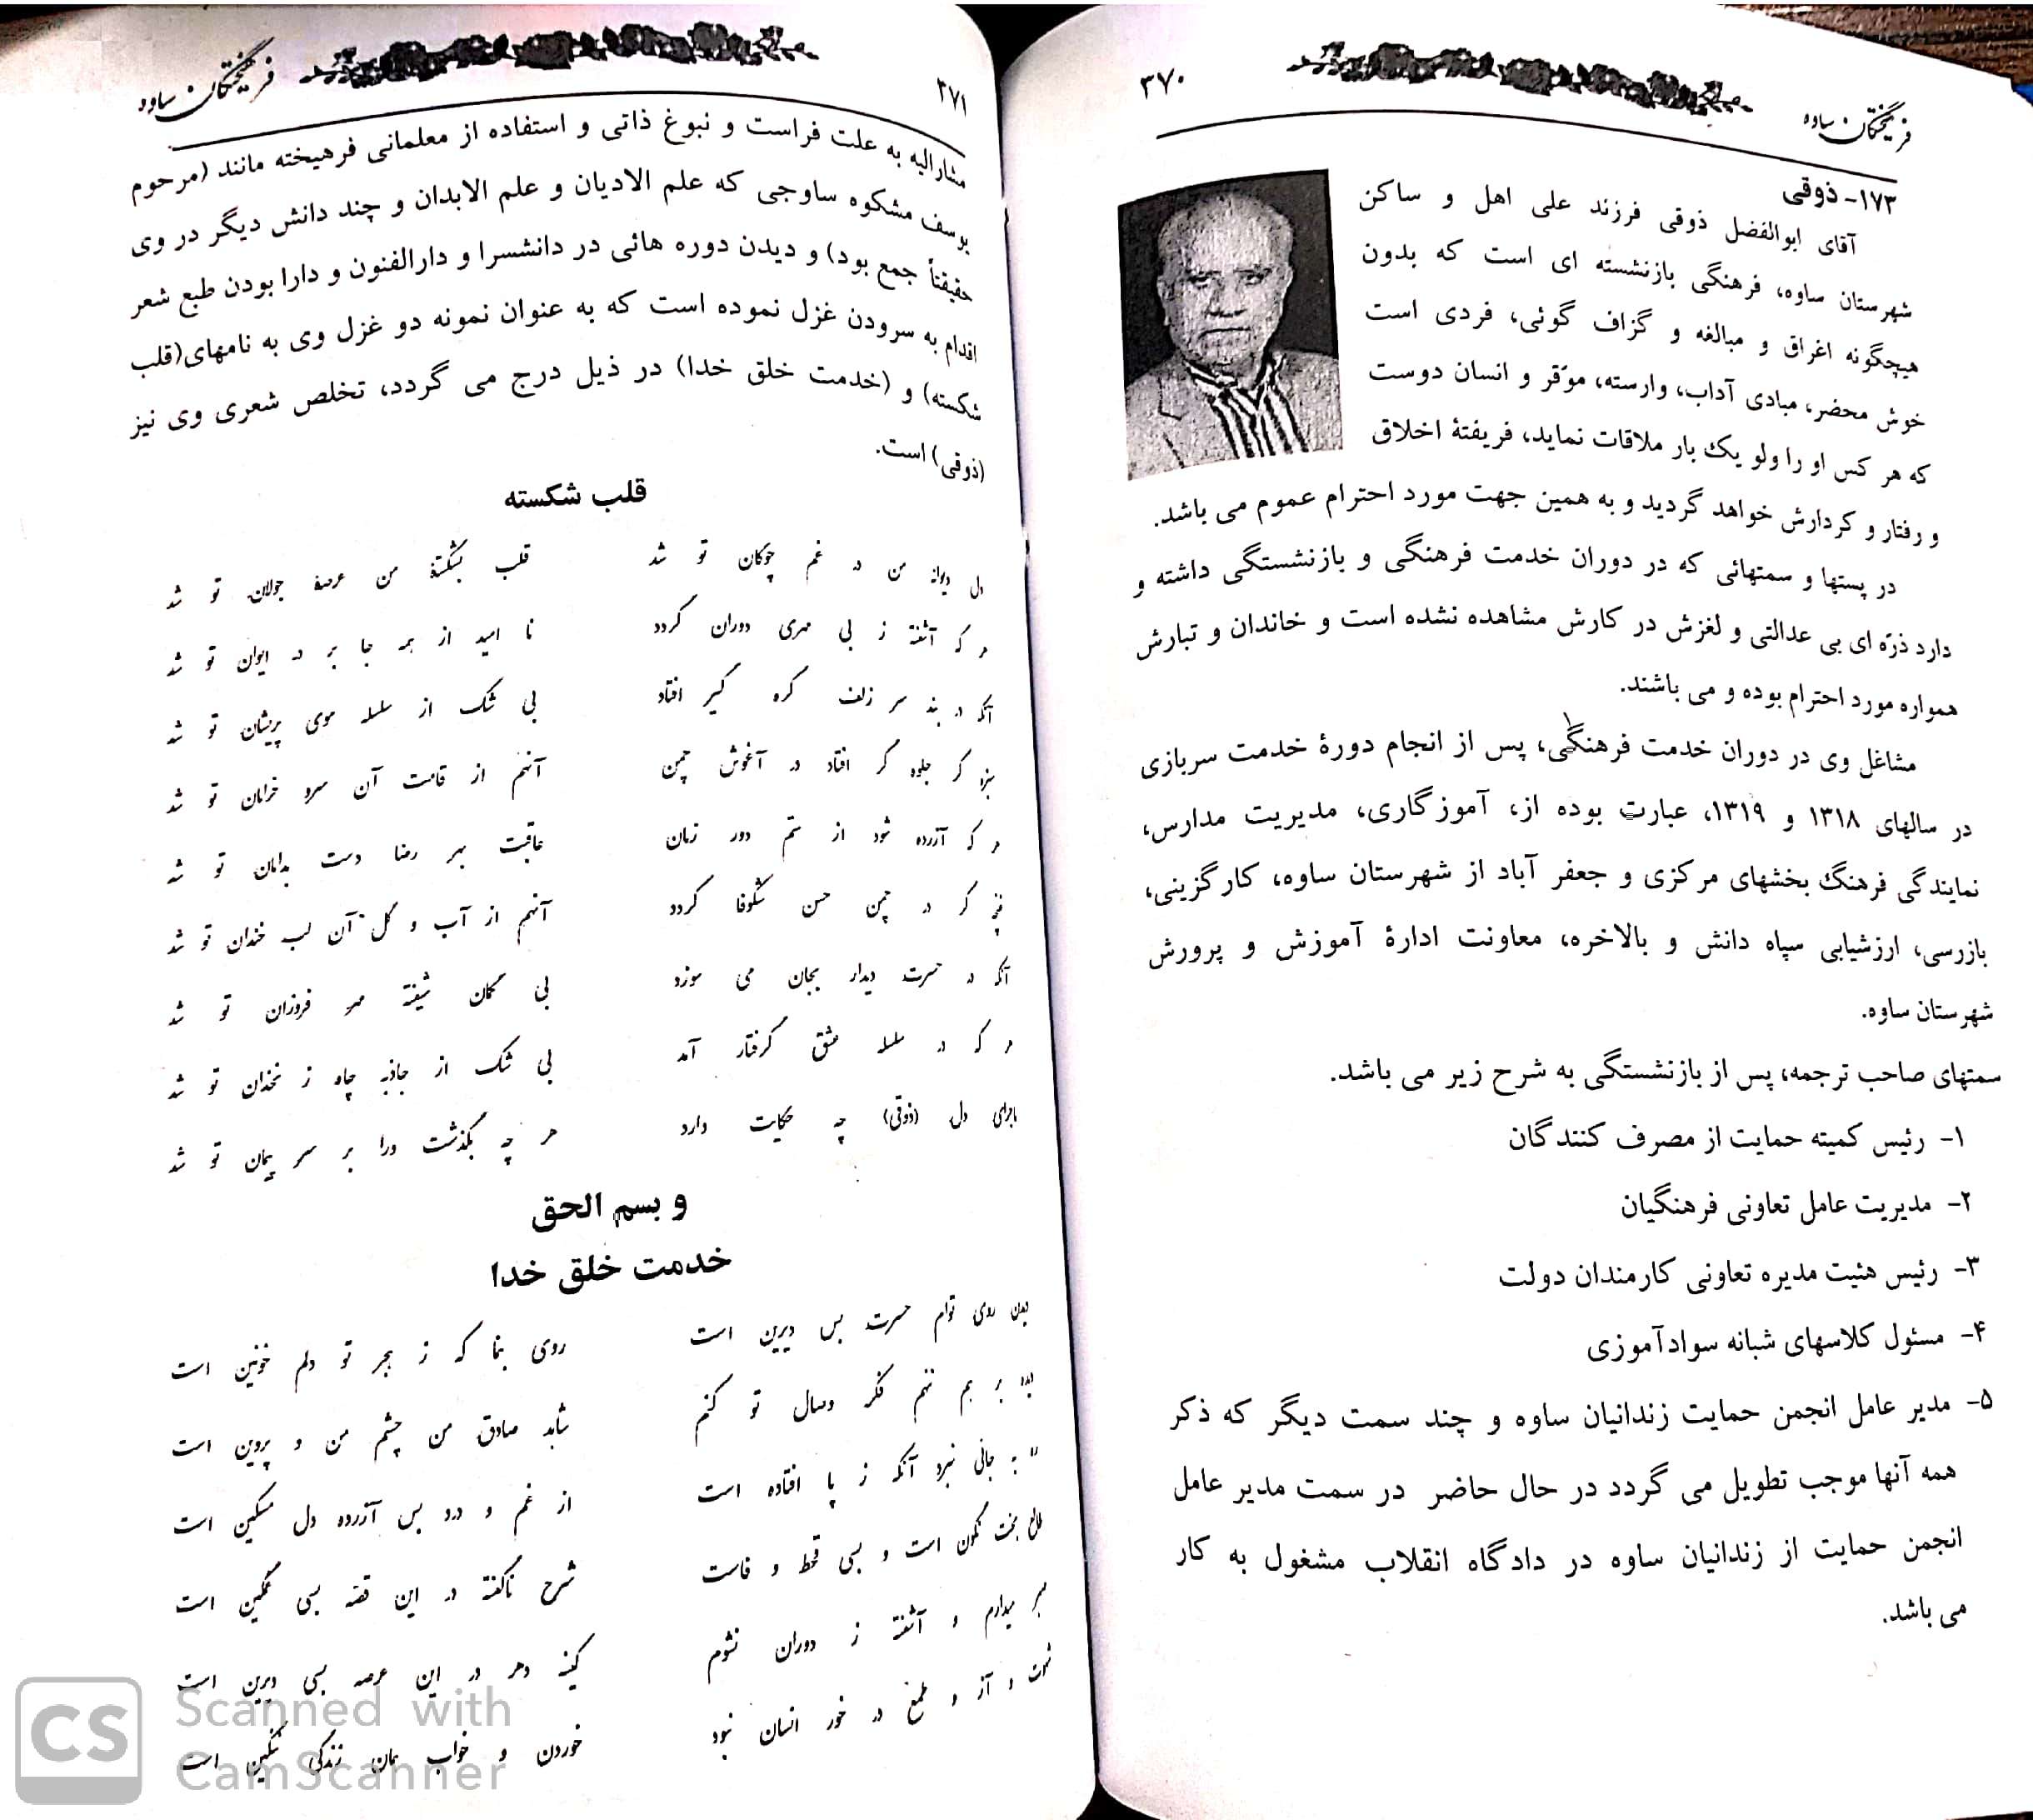 فرهیختگان ساوه
۳۷۰
۱۷۳- ذوقی
آقای ابوالفضل ذوقی فرزند علی اهل و ساکن
شهرستان ساوه، فرهنگی بازنشسته ای است که بدون
هیچگونه اغراق و مبالغه و گزاف گوئی، فردی است
خوش محضر، مبادی آداب، وارسته، موّقر و انسان دوست
که هر کس او را ولو یک بار ملاقات نماید، فریفتۀ اخلاق
و رفتار و کردارش خواهد گردید و به همین جهت مورد احترام عموم می باشد.
در پستها و سمتهائی که در دوران خدمت فرهنگی و بازنشستگی داشته و
دارد ذرّه ای بی عدالتی و لغزش در کارش مشاهده نشده است و خاندان و تبارش
همواره مورد احترام بوده و می باشند.
مشاغل وی در دوران خدمت فرهنگی، پس از انجام دورۀ خدمت سربازی
در سالهای ۱۳۱۸ و ۱۳۱۹، عبارت بوده از، آموزگاری، مدیریت مدارس،
نمایندگی فرهنگ بخشهای مرکزی و جعفر آباد از شهرستان ساوه، کارگزینی،
بازرسی، ارزشیابی سپاه دانش و بالاخره، معاونت ادارۀ آموزش و پرورش
شهرستان ساوه.
سمتهای صاحب ترجمه، پس از بازنشستگی به شرح زیر می باشد.
۱- رئیس کمیته حمایت از مصرف کنندگان
۲- مدیریت عامل تعاونی فرهنگیان
۳- رئیس هئیت مدیره تعاونی کارمندان دولت
۴- مسئول کلاسهای شبانه سوادآموزی
۵- مدیر عامل انجمن حمایت زندانیان ساوه و چند سمت دیگر که ذکر
همه آنها موجب تطویل می گردد در حال حاضر در سمت مدیر عامل
انجمن حمایت از زندانیان ساوه در دادگاه انقلاب مشغول به کار
می باشد.
۳۷۱
فرهیختگان ساوه
مشارالیه به علت فراست و نبوغ ذاتی و استفاده از معلمانی فرهیخته مانند (مرحوم
یوسف مشکوه ساوجی که علم الادیان و علم الابدان و چند دانش دیگر در وی
حقیقتاً جمع بود) و دیدن دوره هائی در دانشسرا و دارالفنون و دارا بودن طبع شعر
اقدام به سرودن غزل نموده است که به عنوان نمونه دو غزل وی به نامهای(قلب
شکسته) و (خدمت خلق خدا) در ذیل درج می گردد، تخلص شعری وی نیز
(ذوقی) است.
قلب شکسته
دل دیوانه من در غم چوگان تو شد قلب بشکستۀ من عرصۀ جولان تو شد
هر که آشفته ز بی مهری دوران گردد نا امید از همه جا بر در ایوان تو شد
آنکه در بند سر زلف گره گیر افتاد بی شک از سلسله موی پریشان تو شد
سبزه گر جلوه گر افتاد در آغوش چمن آنهم از قامت آن سرو خرامان تو شد
هر که آزرده شود از ستم دور زمان عاقبت بهر رضا دست بدامان تو شد
غنچه گر در چمن حسن شکوفا گردد آنهم از آب و گل آن لب خندان تو شد
آنکه در حسرت دیدار بجان می سوزد بی گمان شیفته مهر فروزان تو شد
هر که در سلسله عشق گرفتار آمد بی شک از جاذبه چاه ز نخدان تو شد
ماجرای دل (ذوقی) چه حکایت دارد هر چه بگذشت ورا بر سر پیمان تو شد
و بسم الحق
خدمت خلق خدا
دیدن روی توام حسرت بس دیرین است روی بنما که ز هجر تو دلم خونین است
بر هم ننهم فکر وصال تو کنم شاهد صادق من چشم من و پروین است
به جائی نبرد آنکه ز پا افتاده است از غم و درد بس آزرده دل مسکین است
طالع بخت نگون است و بسی قحط و فاست شرح ناگفته در این قصه بسی غمگین است
صبر میدارم و آشفته ز دوران نشوم کینه دهر در این عرصه بسی دیرین است
شهوت و آز و طمع در خور انسان نبود خوردن و خواب همان زندگی ننگین است
CS Scanned with
CamScanner